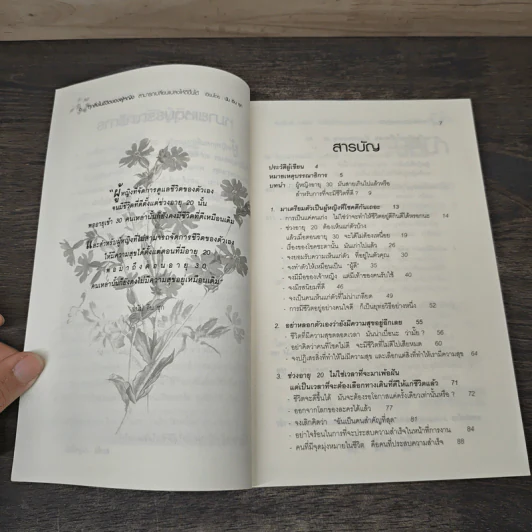 "ผู้หญิงที่จัดการดูแลชีวิตของตัวเอง
จนมีชีวิตที่ดีตั้งแต่ช่วงอายุ 20 นั้น
พออายุเข้า 30 คนเหล่านั้นก็ยังคงมีชีวิตที่ดีเหมือนเดิม
และสำหรับผู้หญิงที่ไม่สามารถจัดการชีวิตของตัวเอง
ให้มีความสุขได้ตั้งแต่ตอนที่มีอายุ 20
ต่อมาถึงตอนอายุ 30
คนเหล่านั้นก็ยังคงไม่มีความสุขอยู่เหมือนเดิม"
สารบัญ
ประวัติผู้เขียน 4
หมายเหตุบรรณาธิการ 5
บทนำ : ผู้หญิงอายุ 30 มันสายเกินไปแล้วหรือ
สำหรับการที่จะมีชีวิตที่ดี? 9
1. มาเตรียมตัวเป็นผู้หญิงที่โชคดีกันเถอะ 13
- การเป็นแค่คนเก่ง ไม่ใช่ว่าจะทำให้ชีวิตอยู่ดีกินดีได้หรอกนะ
- ช่วงอายุ 20 ต้องเห็นแก่ตัวบ้าง
แล้วเมื่อตอนอายุ 30 จะได้ไม่ต้องเหนื่อย 19
- เรื่องของโชคชะตานั้น มันเก่าไปแล้ว 26
- จงยอมรับความเห็นแก่ตัว ที่อยู่ในตัวคุณ 30
- จงทำตัวให้เหมือนเป็น "ผู้ดี" 35
- จงมีมือของเจ้าหญิง แต่มีเท้าของคนรับใช้ 40
- จงมีรสนิยมที่ดี 43
- จงเป็นคนเห็นแก่ตัวที่ไม่น่าเกลียด 49
- การมีชีวิตอยู่อย่างคนใจดี ก็เป็นยุทธวิธีอย่างหนึ่ง 52
2. อย่าหลอกตัวเองว่ายังมีความสุขอยู่อีกเลย 55
- ชีวิตที่มีความสุขตลอดเวลา มันน่าเบื่อนะ ว่ามั้ย? 56
- อย่าคิดว่าคนที่โชคไม่ดี จะมีชีวิตที่ไม่ดีไปเสียหมด 60
- จงปฏิเสธสิ่งที่ทำให้ไม่มีความสุข และเลือกแต่สิ่งที่ทำให้เรามีความสุข
3. ช่วงอายุ 20 ไม่ใช่เวลาที่จะมาเพ้อฝัน
แต่เป็นเวลาที่จะต้องเลือกทางเดินที่ดีให้แก่ชีวิตแล้ว 71
- ชีวิตจะดีขึ้นได้ มันจะต้องรอโอกาสแค่ครั้งเดียวเท่านั้นหรือ? 72
- ออกจากโลกของละครได้แล้ว 77
- จงเลิกคิดว่า "ฉันเป็นคนสำคัญที่สุด" 81
- อย่าใจร้อนในการที่จะประสบความสำเร็จในหน้าที่การงาน 84
- คนที่มีจุดมุ่งหมายในชีวิต คือคนที่ประสบความสำเร็จ 88